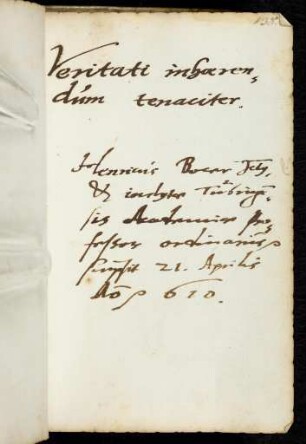 Veritati inhæren-
dúm tenaciter.
Henricus Bocer Jctus,
& inclytæ Tubingen-
sis Academiæ pro-
fessor ordinarius
scripsit 21. Aprilis
Aõ 610.